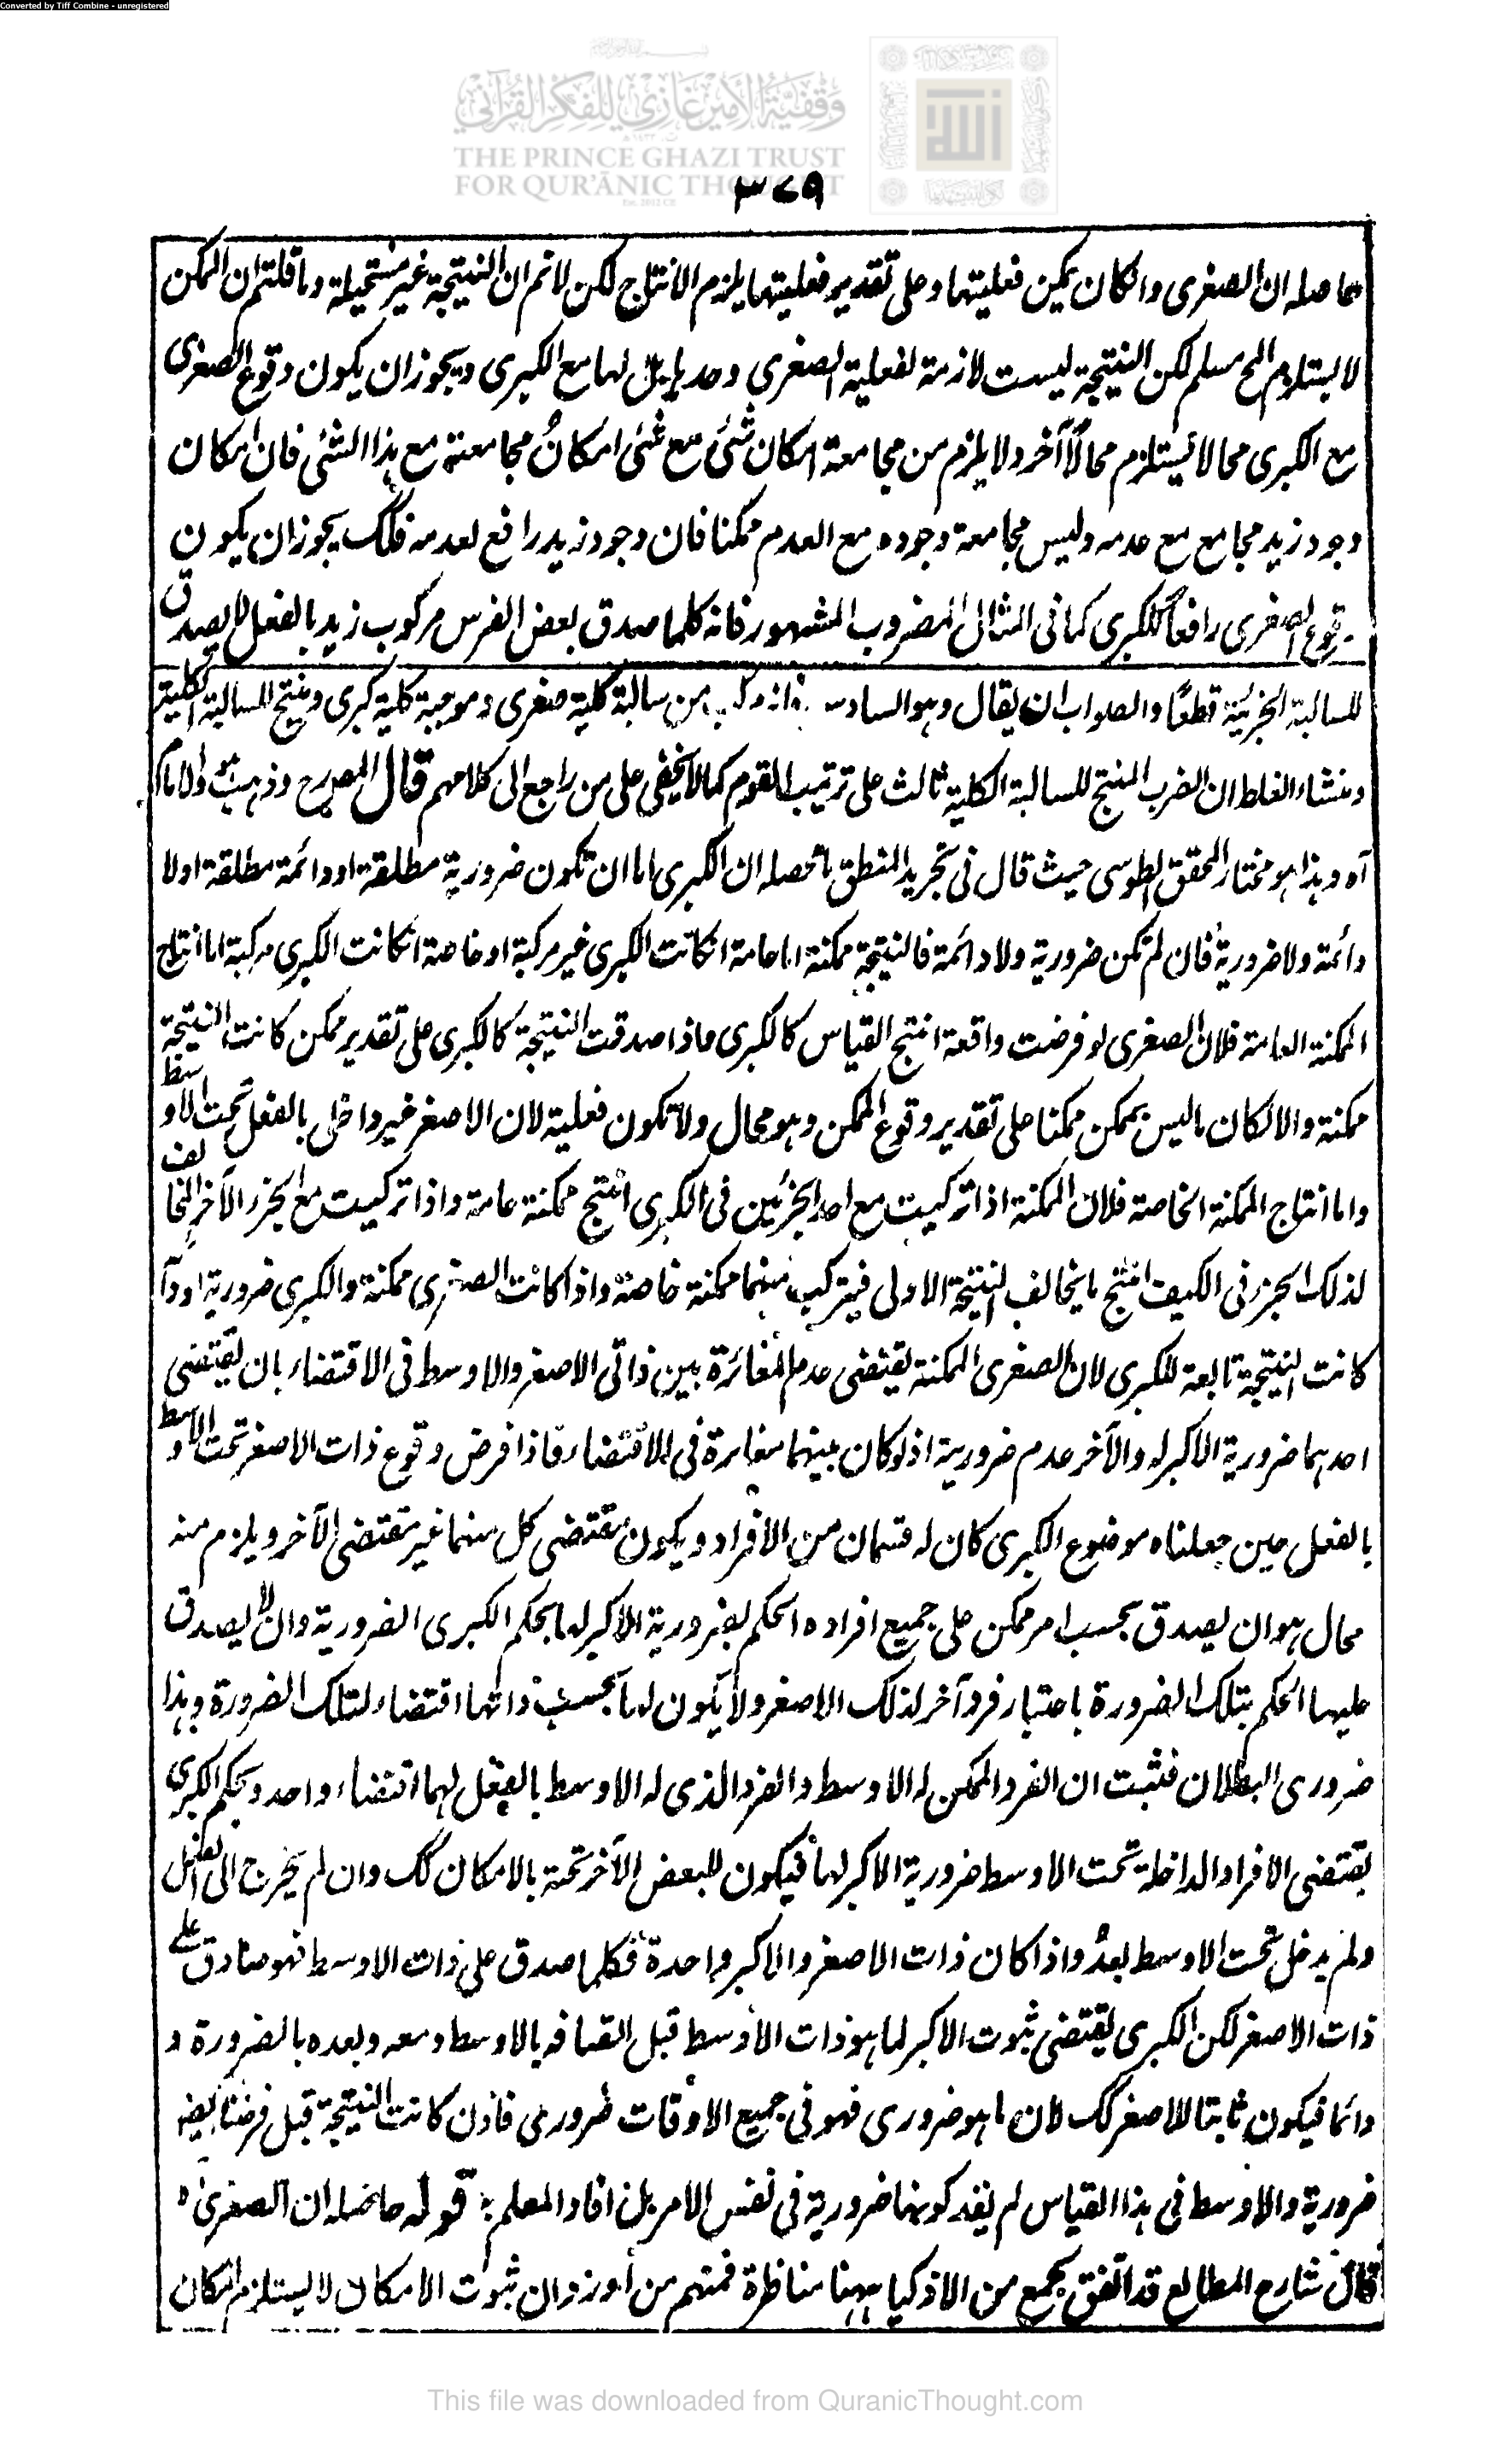 Converted by Tiff Combine - unregistered
وقفية الأمير غازي للفكر القرآني
THE PRINCE GHAZI TRUST
FOR QUR'ĀNIC THOUGHT
٣٧٩
حاصله ان الصغرى وان كان يمكن فعليتها وعلى تقدير فعليتها يلزم الانتاج لكن لانم ان النتيجة غير مستحيلة وما قلتم ان الممكن
لا يستلزم المح مسلم لكن النتيجة ليست لازمة لفعلية الصغرى وحدها بل لها مع الكبرى ويجوز ان يكون وقوع الصغرى
مع الكبرى محالا فيستلزم محالاً آخر ولا يلزم من مجامعة امكان شئ مع شئ امكانُ مجامعته مع هذا الشئ فان امكان
وجود زيد مجامع مع عدمه وليس مجامعة وجوده مع العدم ممكنا فان وجود زيد رافع لعدمه فكك يجوز ان يكون
وقوع الصغرى رافعاً للكبرى كما فى المثال المضروب المشهور فانه كلما صدق بعض الفرس مركوب زيد بالفعل لا يصدق
للسالبة الجزئية قطعًا والصواب ان يقال وهو السادس من سالبة كلية صغرى وموجبة كلية كبرى وينتج للسالبة الكلية
ومنشاء الغلط ان الضرب المنتج للسالبة الكلية ثالث على ترتيب القوم كما لا يخفى على من راجع الى كلامهم قال المصرح وذهب هو والامام
آه وهذا هو مختار المحقق الطوسى حيث قال فى تجريد المنطق ما محصله ان الكبرى اما ان تكون ضرورية مطلقة او دائمة مطلقة اولا
دائمة ولا ضرورية فان لم تكن ضرورية ولا دائمة فالنتيجة ممكنة اما عامة انكانت الكبرى غير مركبة او خاصة انكانت الكبرى مركبة اما انتاج
الممكنة العامة فلان الصغرى لو فرضت واقعة انتج القياس كالكبرى فاذا صدقت النتيجة كالكبرى على تقدير ممكن كانت النتيجة
ممكنة والا لكان ما ليس بممكن ممكنا على تقدير وقوع الممكن وهو محال ولا تكون فعلية لان الاصغر غير داخل بالفعل تحت الاوسط
واما انتاج الممكنة الخاصة فلان الممكنة اذا تركبت مع احد الجزئين فى الكبرى انتج ممكنة عامة واذا تركبت مع الجزر الآخر المخالف
لذلك الجزر فى الكيف انتج ما يخالف النتيجة الاولى فيتركب منهما ممكنة خاصة واذا كانت الصغرى ممكنة والكبرى ضرورية او دآ
كانت النتيجة تابعة للكبرى لان الصغرى الممكنة يقتضى عدم المغائرة بين ذاتى الاصغر والاوسط فى الاقتضاء بان يقتضى
احدهما ضرورية الاكبر له والآخر عدم ضرورية اذ لو كان بينهما مغايرة فى الاقتضاء فاذا فرض وقوع ذات الاصغر تحت الاوسط
بالفعل حين جعلناه موضوع الكبرى كان له قسمان من الافراد ويكون مقتضى كل منهما غير مقتضى الآخر ويلزم منه
محال هو ان يصدق بحسب امر ممكن على جميع افراده الحكم بضرورية الاكبر لها بحكم الكبرى الضرورية وان لا يصدق
عليها الحكم بتلك الضرورة باعتبار فرد آخر لذلك الاصغر ولا يكون لها بحسب ذاتها اقتضاء لتلك الضرورة وهذا
ضرورى البطلان فثبت ان الفرد الممكن له الاوسط والفرد الذى له الاوسط بالفعل لهما اقتضاء واحد وبحكم الكبرى
يقتضى الافراد الداخلة تحت الاوسط ضرورية الاكبر لها فيكون للبعض الآخر تحته بالامكان كك وان لم يخرج الى الفعل
ولم يدخل تحت الاوسط بعدُ واذا كان ذات الاصغر والاكبر واحدة فكلما صدق على ذات الاوسط فهو صادق على
ذات الاصغر لكن الكبرى يقتضى ثبوت الاكبر لما هو ذات الاوسط قبل اتصافه بالاوسط ومعه وبعده بالضرورة و
دائما فيكون ثابتا للاصغر كك لان ما هو ضرورى فهو فى جميع الاوقات ضرورى فاذن كانت النتيجة قبل فرضنا ايضا
ضرورية والاوسط فى هذا القياس لم يفد كونها ضرورية فى نفس الامر بل افاد المعلم ؛ قوله حاصله ان الصغرى ه
قال شارح المطالع قد اتفق لجمع من الاذكيا ههنا مناظرة فمنهم من أورد وان ثبوت الامكان لا يستلزم امكان
This file was downloaded from QuranicThought.com